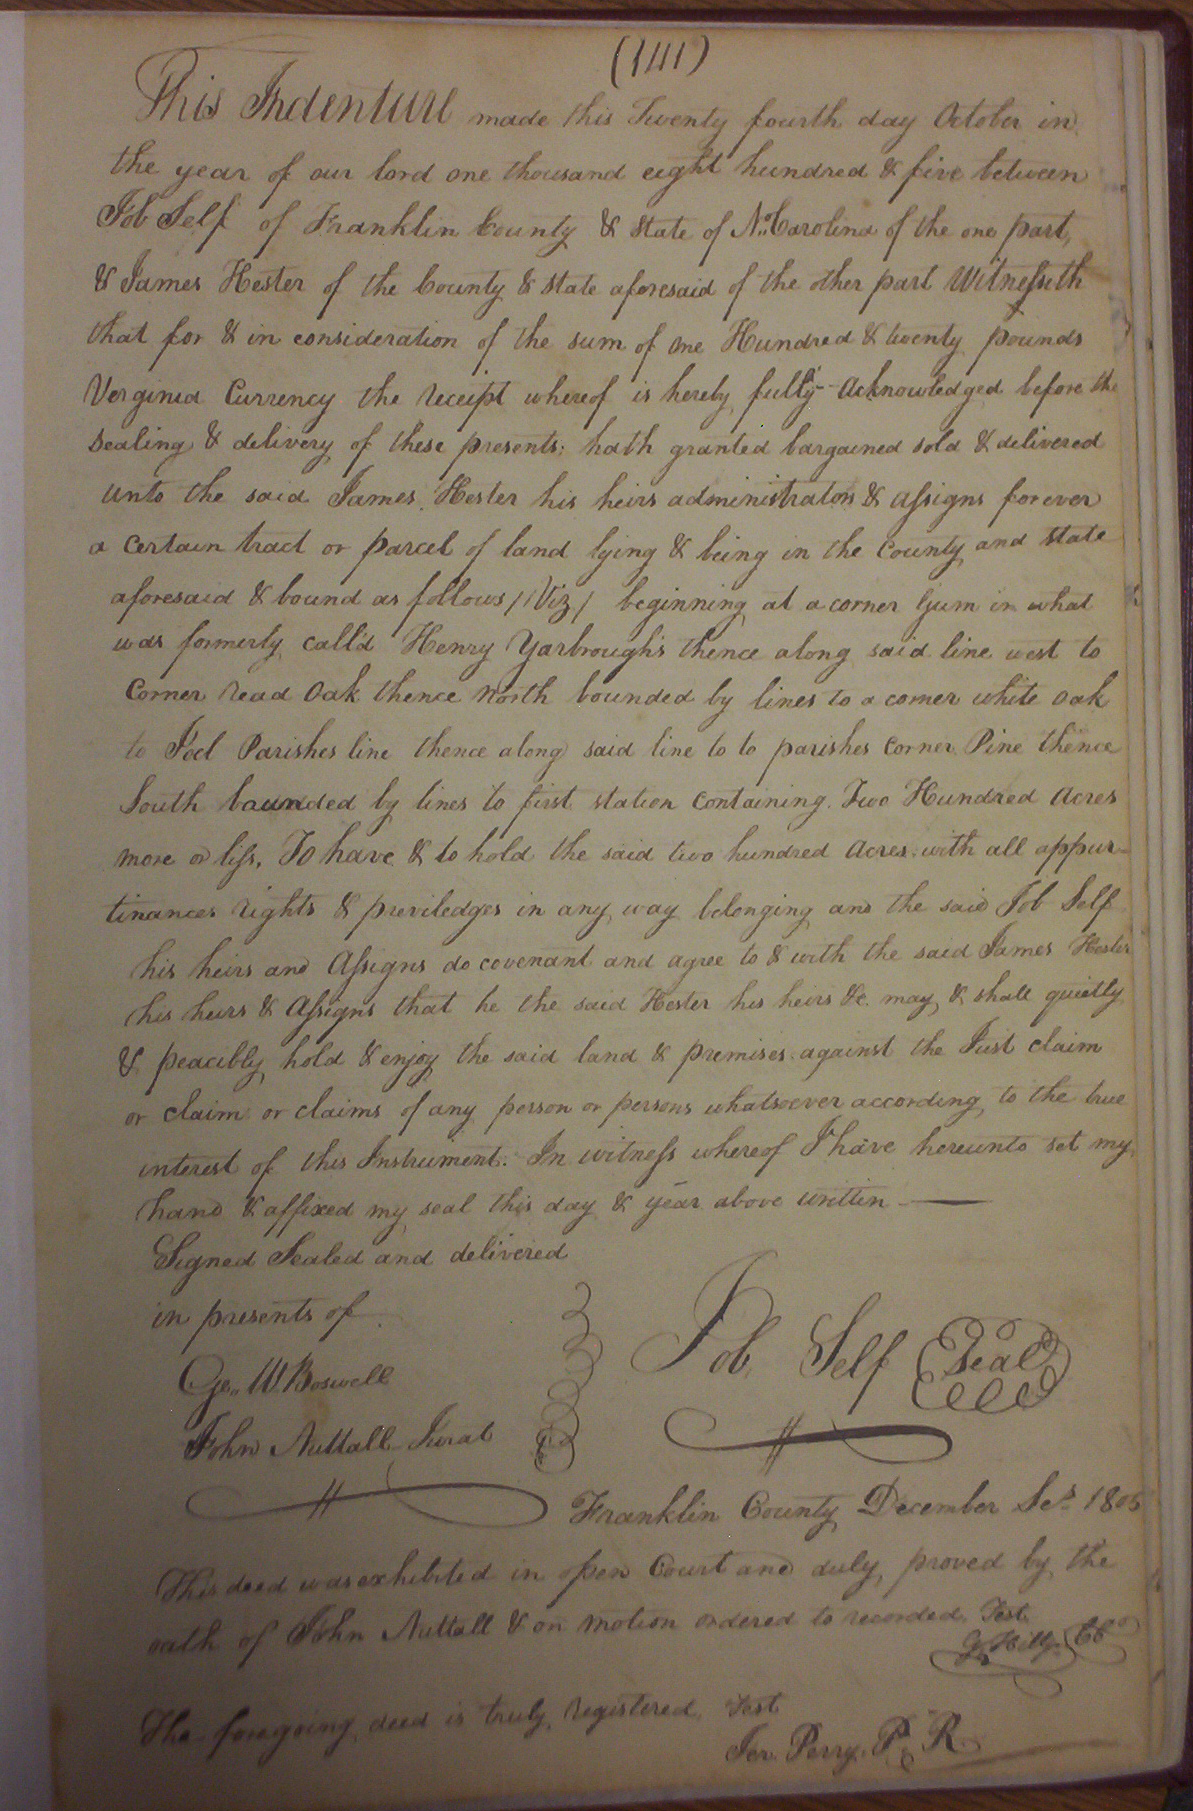 (141)
This Indenture made this Twenty fourth day October in
the year of our lord one thousand eight hundred & five between
Job Self of Franklin County & State of N. Carolina of the one part,
& James Hester of the County & State aforesaid of the other part Witnesseth
that for & in consideration of the sum of one Hundred & twenty pounds
Verginia Currency the receipt whereof is hereby fully Acknowledged before the
Sealing & delivery of these presents; hath granted bargained sold & delivered
unto the said James Hester his heirs administrators & assigns forever
a Certain tract or parcel of land lying & being in the County and State
aforesaid & bound as follows //Viz/ beginning at a corner Gum in what
was formerly call'd Henry Yarbrough's thence along said line west to
Corner read Oak thence North bounded by lines to a corner white Oak
to Joel Parishes line thence along said line to to parishes Corner Pine thence
South baunded by lines to first station Containing Two Hundred Acres
more or less, To have & to hold the said two hundred Acres with all appur-
tinances rights & previledges in any way belonging and the said Job Self
his heirs and Assigns do covenant and agree to & with the said James Hester
his heirs & Assigns that he the said Hester his heirs &c. may & shall quietly
& peacibly hold & enjoy the said land & premises against the Just claim
or claim or claims of any person or persons whatsoever according to the true
interest of this Instrument. In witness whereof I have hereunto set my
hand & affixed my seal this day & year above written
Signed Sealed and delivered
in presents of
Geo. W. Boswell
Job Self (Seal)
John Nuttall Jurat
Franklin County December Ses. 1805
This deed was exhibited in open Court and duly proved by the
oath of John Nuttall & on motion ordered to recorded. Test
G. Hill CC
The foregoing deed is truly registered, Test
Jer. Perry P. R.